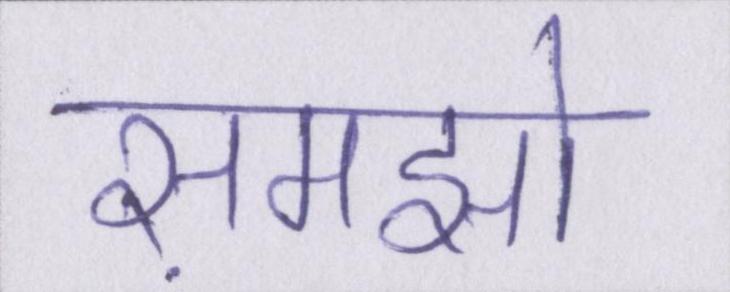 स़मझो